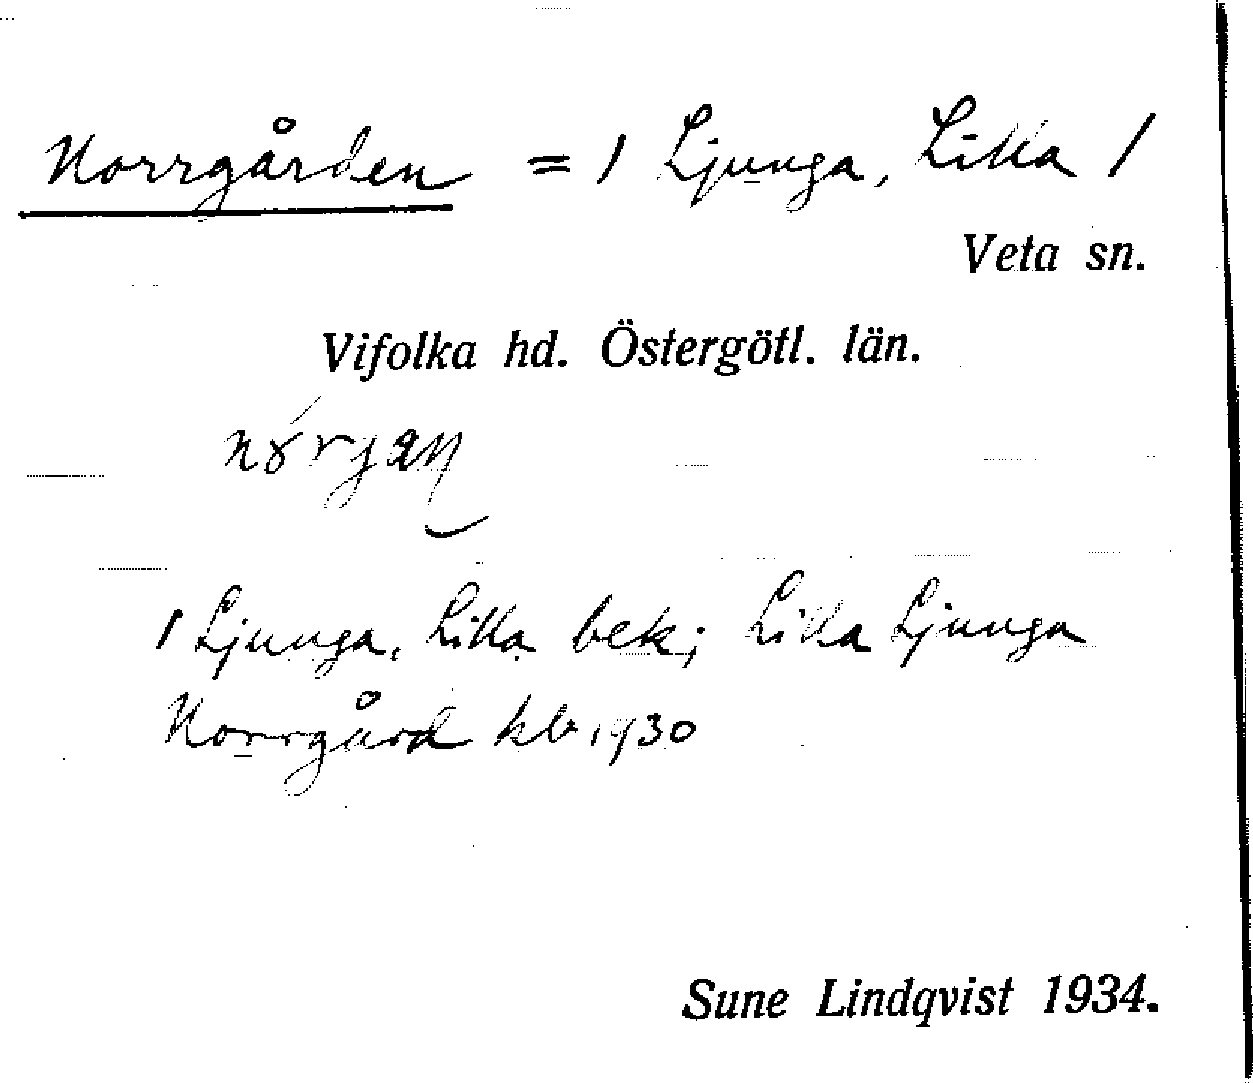 Norrgården = 1 Ljunga, Lilla /
Veta sn.
Vifolka hd. Östergötl. län.
1 Ljunga, Lilla bek; Lilla Ljunga
Norrgård kb 1930
Sune Lindqvist 1934.